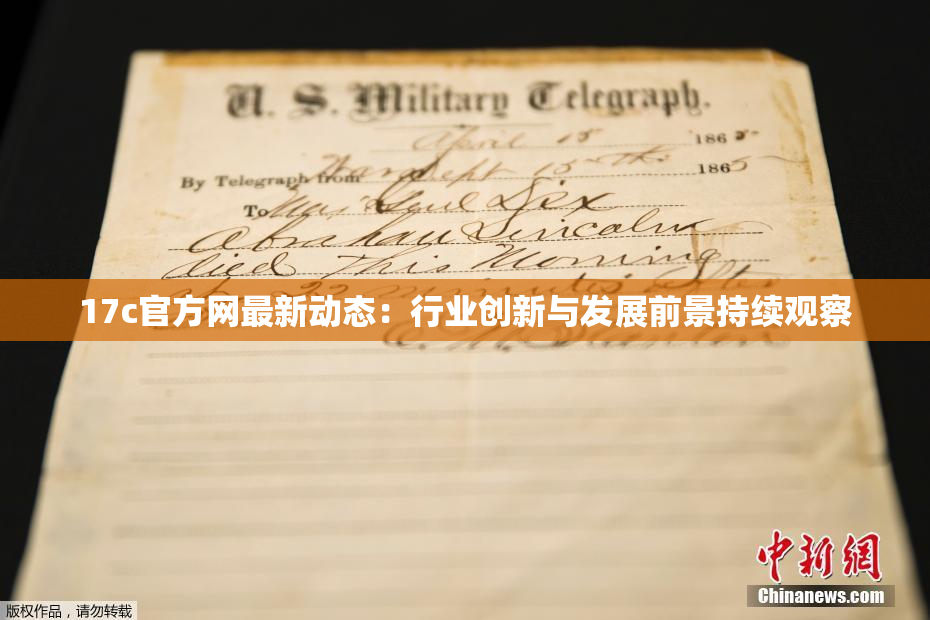 U. S. Military Telegraph.
April 15 1865
By Telegraph from War Dept 15th 1865
To Maj Genl Dix
Abraham Lincoln
died This Morning
at 22 minutes after
17c官方网最新动态：行业创新与发展前景持续观察
E. M. Stanton
中新网
Chinanews.com
版权作品，请勿转载